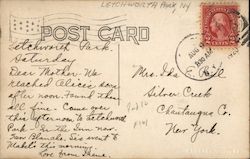 LETCHWORTH PARK, NY
POST CARD
Letchworth Park.
Saturday
Dear Mother. We
reached Alices
after noon. Found them
all fine. Come over
this afternoon to Letchworth
Park. In the Inn now.
Blanche, Geo went to
Mabel's this morning.
Love from
Mrs. Ida E.
Silver Creek
Chautauqua Co.
New York.